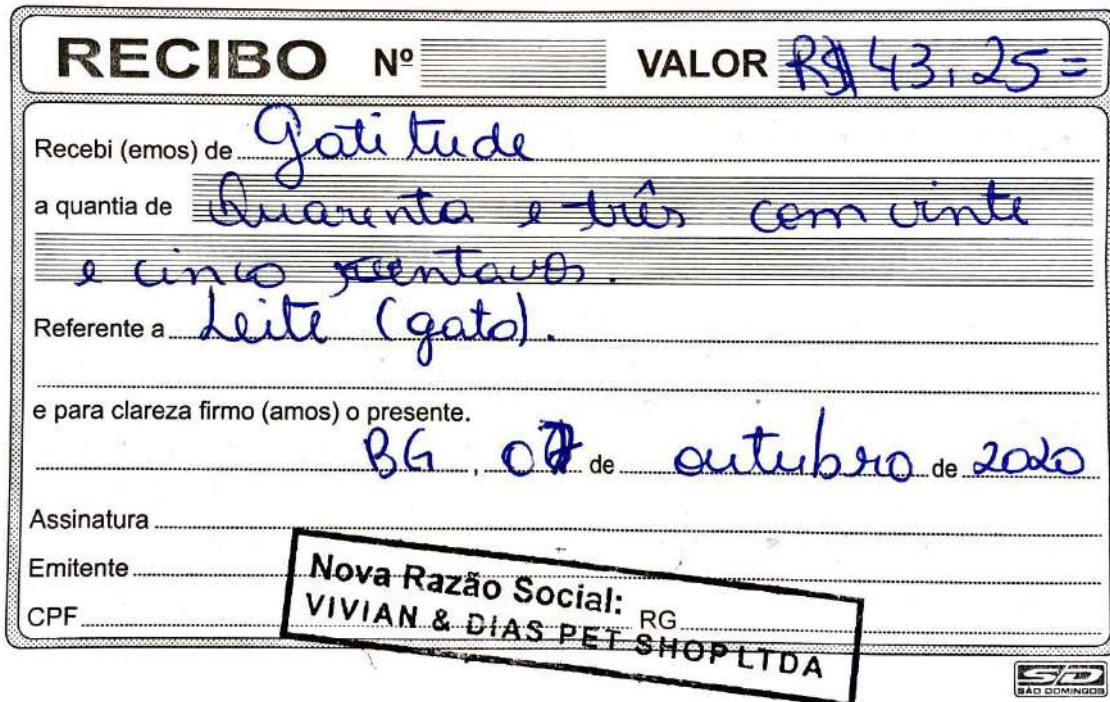 RECIBO Nº VALOR R$ 43,25=
Recebi (emos) de Gatitude
a quantia de Quarenta e três com vinte
e cinco centavos.
Referente a Leite (gato).
e para clareza firmo (amos) o presente.
BG, 07 de outubro de 2020
Assinatura
Emitente
Nova Razão Social:
CPF RG
VIVIAN & DIAS PET SHOP LTDA
SD
SÃO DOMINGOS